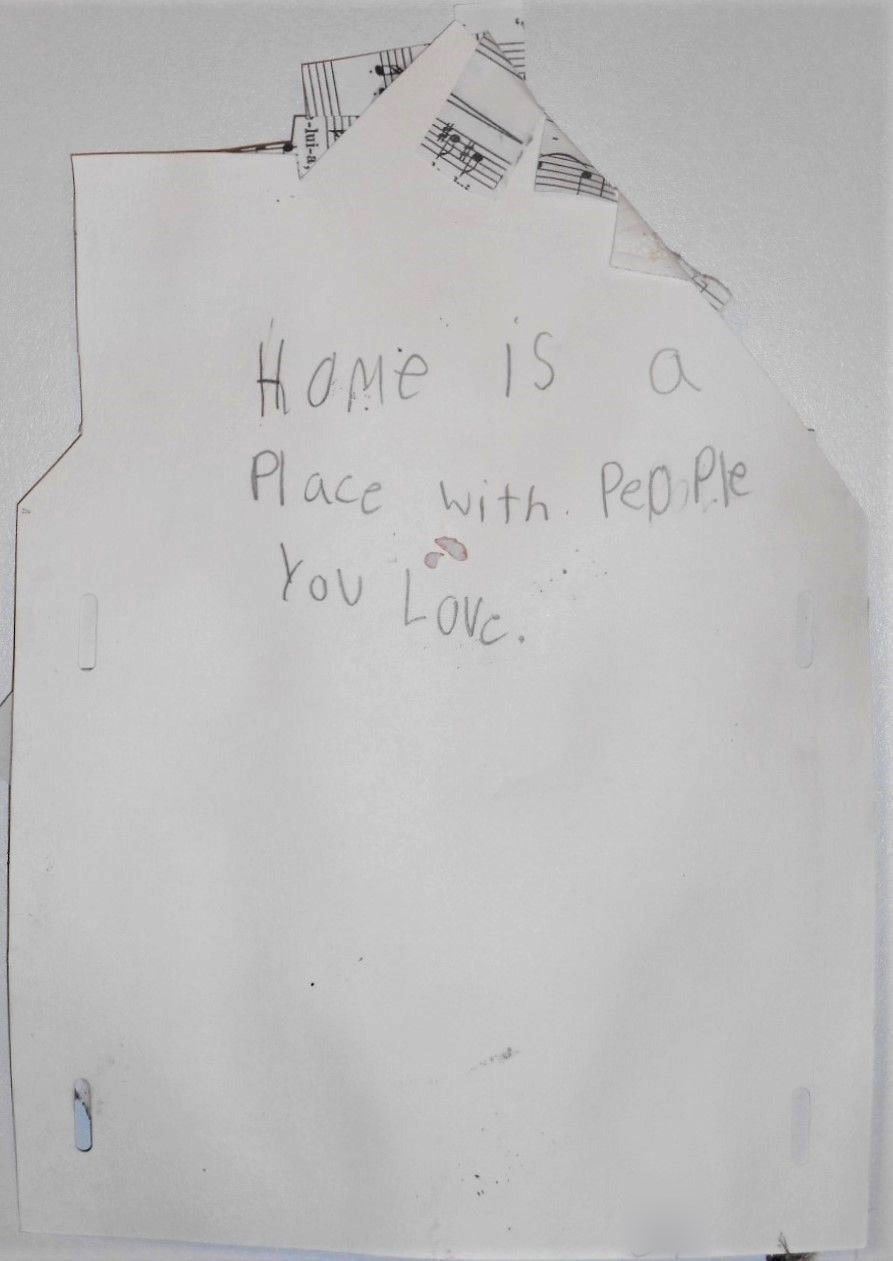 -lui-a,
Home is a
Place with PeoPle
You Love.